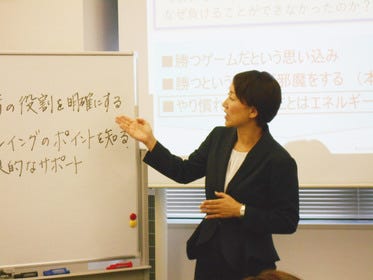 の役割を明確にする
イングのポイントを知る
的なサポート
なぜ負けることができなかったのか?
■勝つゲームだという思い込み
■勝つという
邪魔をする(本
■やり慣
とはエネルギー